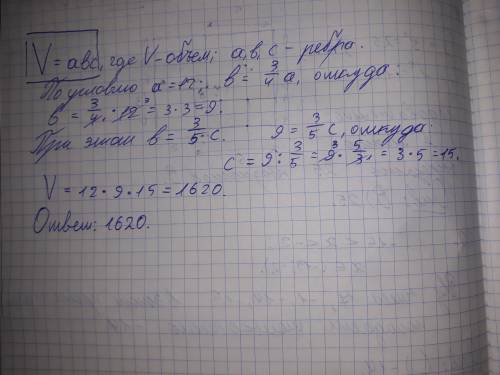 V = abc, где V - объем; a, b, c - ребра.
По условию a = 12; b = 3/4 a, откуда:
b = 3/4 · 12 ³ = 3 · 3 = 9.
При этом b = 3/5 c. 9 = 3/5 c, откуда:
c = 9 : 3/5 = 9 ³ · 5/3 ₁ = 3 · 5 = 15.
V = 12 · 9 · 15 = 1620.
Ответ: 1620.